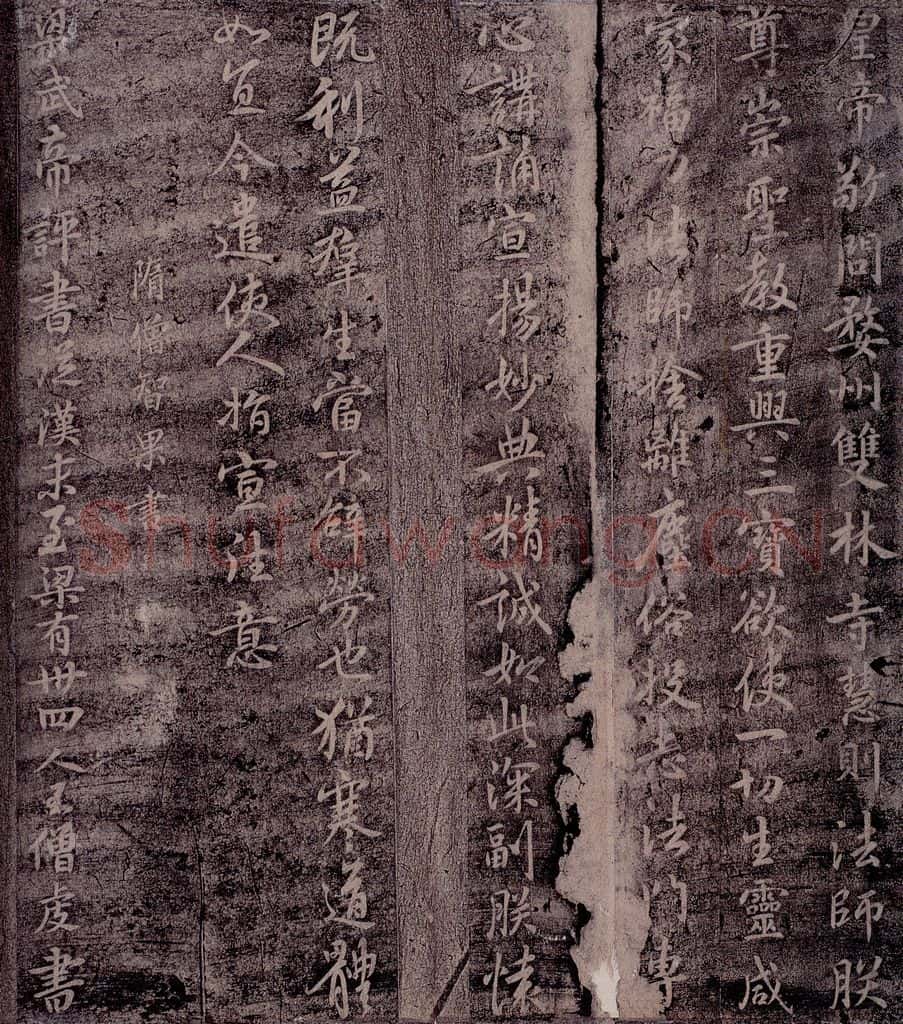 皇帝敬問婺州雙林寺慧則法師朕
尊崇聖教重興三寶欲使一切生靈咸
蒙福力法師捨離塵俗投志法門專
心講誦宣揚妙典精誠如此深副朕懷
既利益羣生當不辭勞也猶寒道體
如宜今遣使人指宣往意
隋僧智果書
梁武帝評書從漢末至梁有卅四人王僧虔書
Shufawang.CN